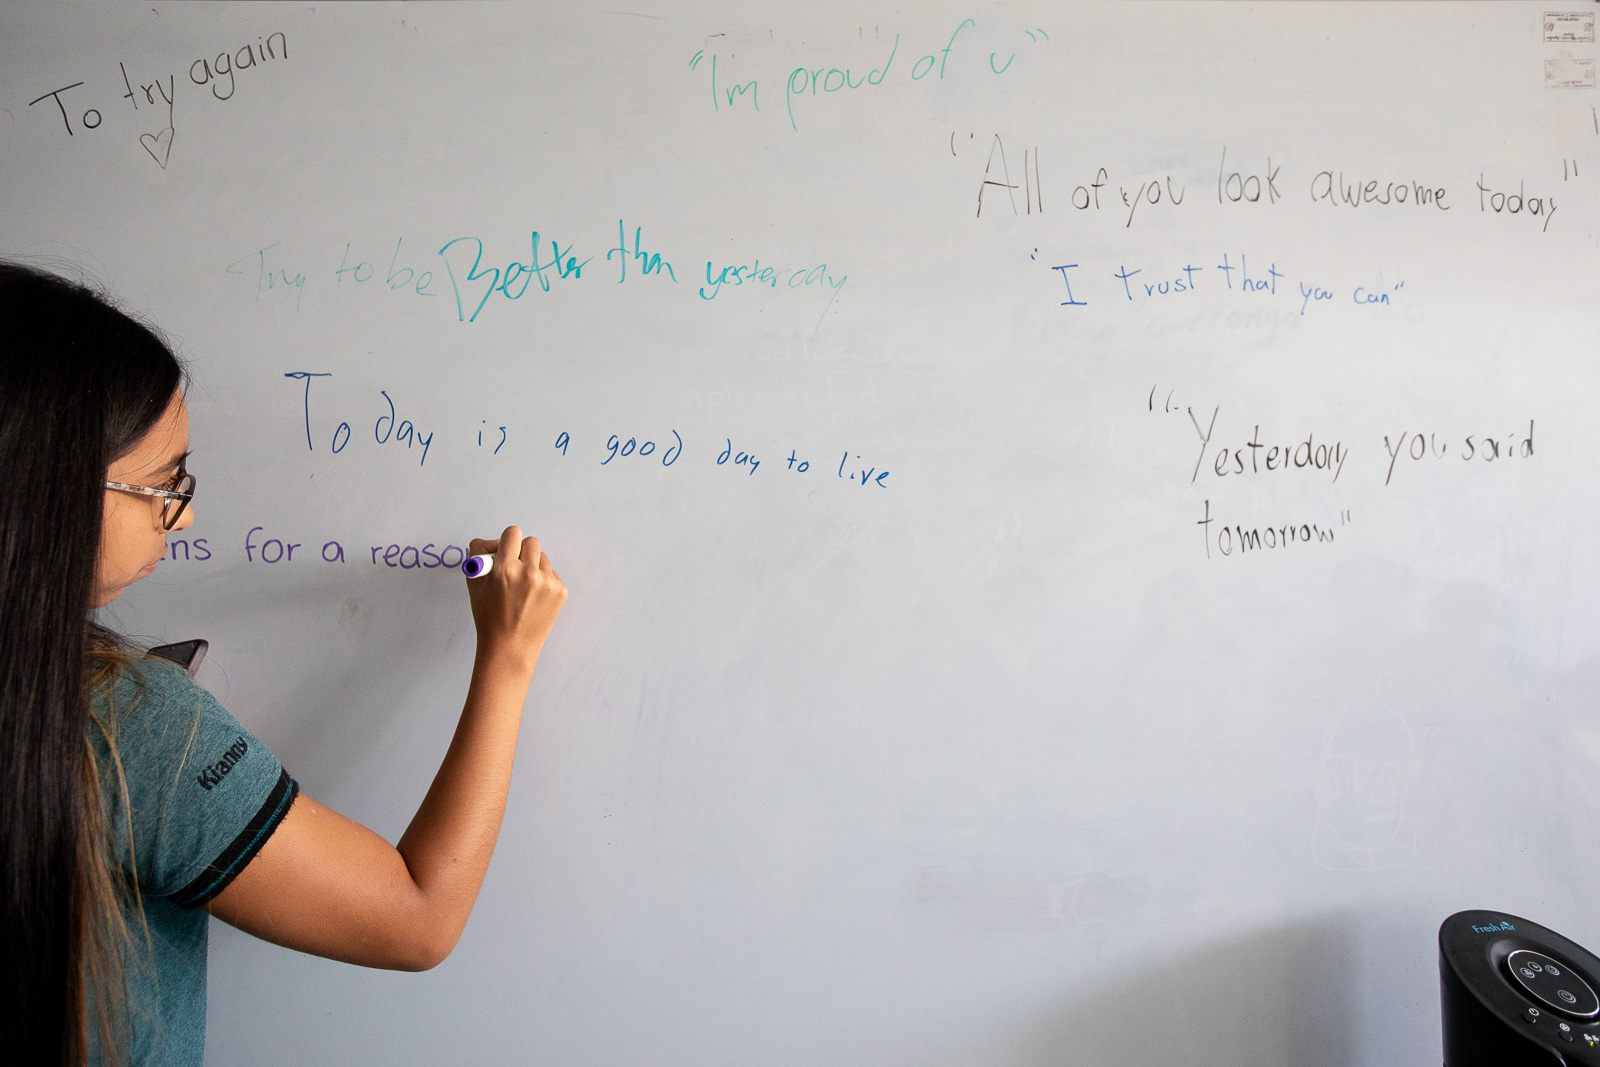 To try again
"I'm proud of u"
"All of you look awesome today"
Try to be Better than yesterday
"I trust that you can"
Today is a good day to live
"Yesterday you said
tomorrow"
for a reaso
Kianny
Fresh Air